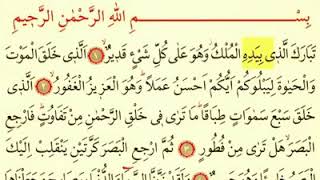 بِسْمِ اللهِ الرَّحْمٰنِ الرَّحِيْمِ
تَبَارَكَ الَّذِىْ بِيَدِهِ الْمُلْكُ وَهُوَ عَلٰى كُلِّ شَىْءٍ قَدِيْرٌ ۝١ الَّذِىْ خَلَقَ الْمَوْتَ
وَالْحَيٰوةَ لِيَبْلُوَكُمْ اَيُّكُمْ اَحْسَنُ عَمَلًا وَهُوَ الْعَزِيْزُ الْغَفُوْرُ ۝٢ الَّذِىْ
خَلَقَ سَبْعَ سَمٰوٰتٍ طِبَاقًا مَا تَرٰى فِىْ خَلْقِ الرَّحْمٰنِ مِنْ تَفَاوُتٍ فَارْجِعِ
الْبَصَرَ هَلْ تَرٰى مِنْ فُطُوْرٍ ۝٣ ثُمَّ ارْجِعِ الْبَصَرَ كَرَّتَيْنِ يَنْقَلِبْ اِلَيْكَ